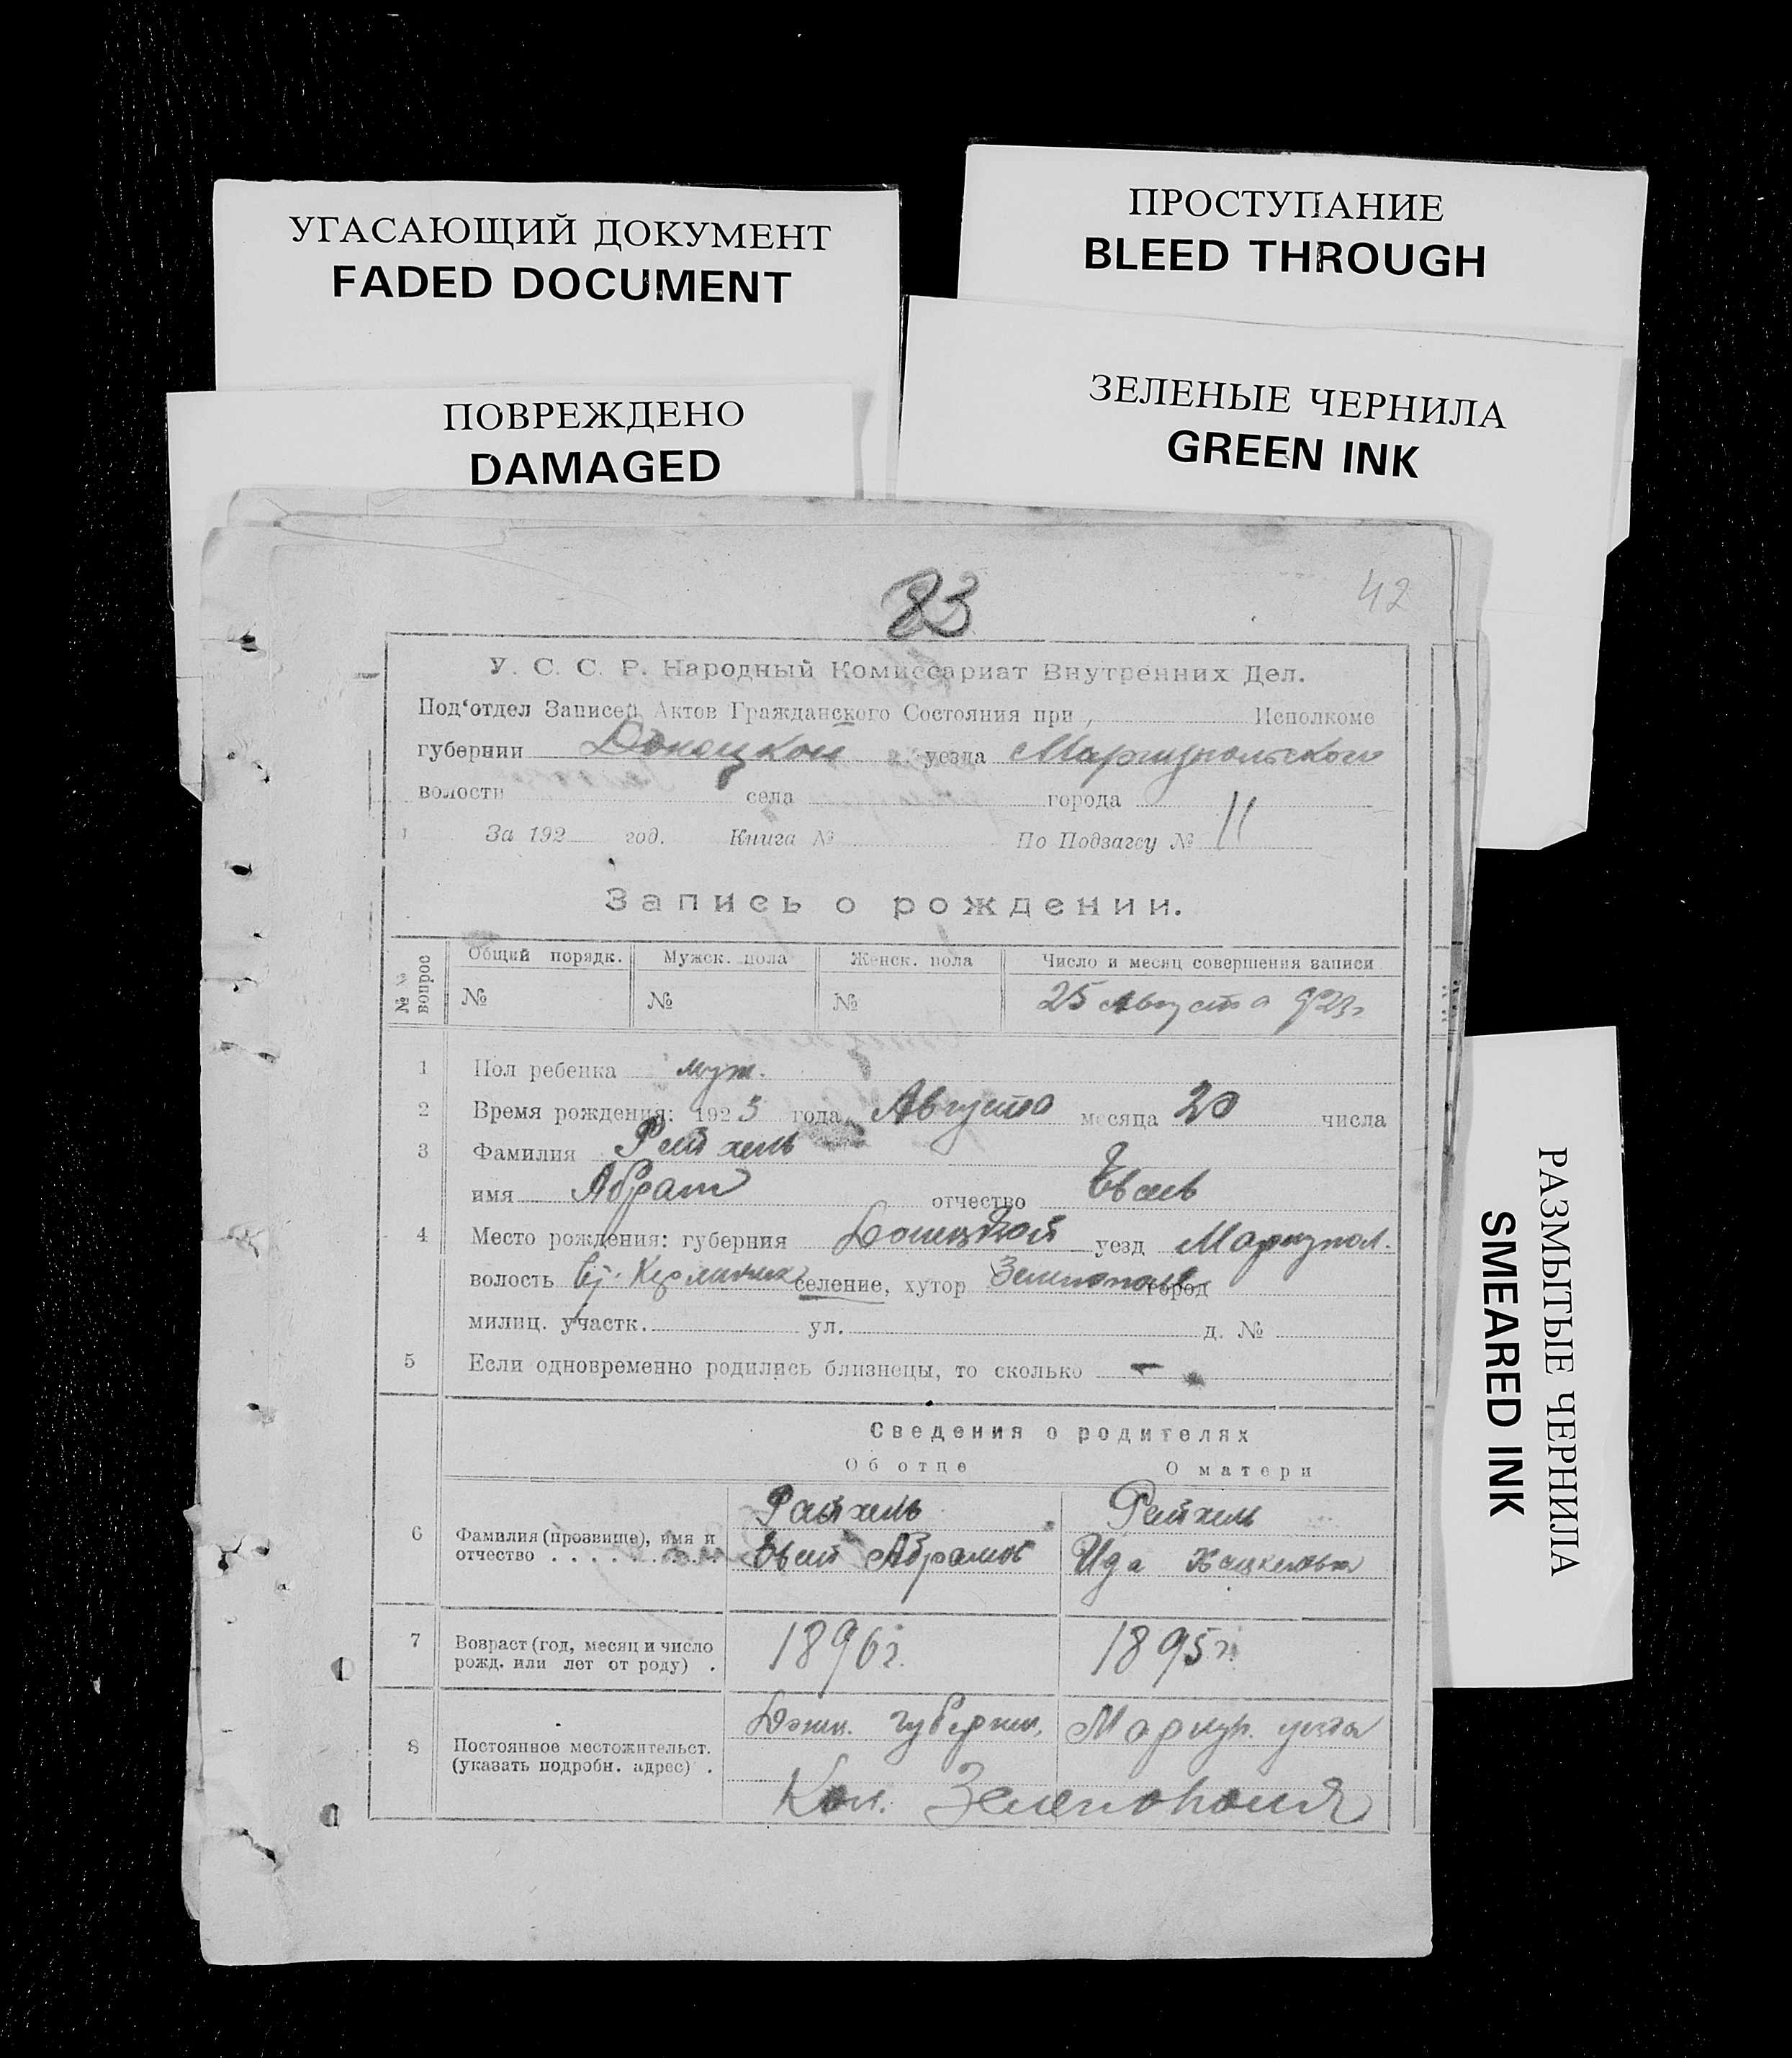 УГАСАЮЩИЙ ДОКУМЕНТ
FADED DOCUMENT
ПРОСТУПАНИЕ
BLEED THROUGH
ПОВРЕЖДЕНО
DAMAGED
ЗЕЛЕНЫЕ ЧЕРНИЛА
GREEN INK
83
42
У. С. С. Р. Народный Комиссариат Внутренних Дел.
Под‘отдел Записей Актов Гражданского Состояния при Исполкоме
губернии Донецкой уезда Мариупольского
волости села города
За 192 год. Книга № По Подзагсу № 11
Запись о рождении.
№ № вопрос Общий порядк. Мужск. пола Женск. пола Число и месяц совершения записи
№ № № 25 Августа 923г
1 Пол ребенка муж.
2 Время рождения: 1923 года Августа месяца 20 числа
3 Фамилия Рейхель
имя Абрам отчество
4 Место рождения: губерния Донецкой уезд Мариупол.
волость селение, хутор Зеленополь город
милиц. участк. ул. д. №
5 Если одновременно родились близнецы, то сколько —
Сведения о родителях
Об отце О матери
6 Фамилия (прозвище), имя и отчество Райхель Рейхель
Абрамов Ида
7 Возраст (год, месяц и число рожд. или лет от роду) . 1896г. 1895г.
8 Постоянное местожительст. (указать подробн. адрес) . Донец. губернии, Мариуп. уезда
Кол. Зеленополя
РАЗМЫТЫЕ ЧЕРНИЛА
SMEARED INK